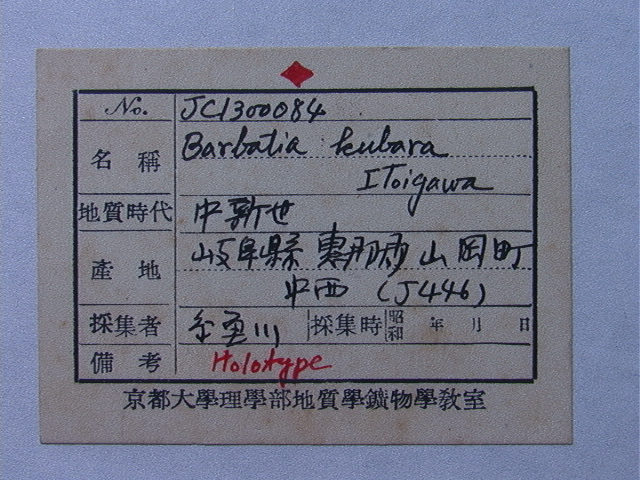 No. JC1300084
名稱 Barbatia kubara
Itoigawa
地質時代 中新世
產地 岐阜縣 惠那郡 山岡町
中西 (J446)
採集者 糸魚川 採集時 昭和 年 月 日
備考 Holotype
京都大學理學部地質學鑛物學敎室